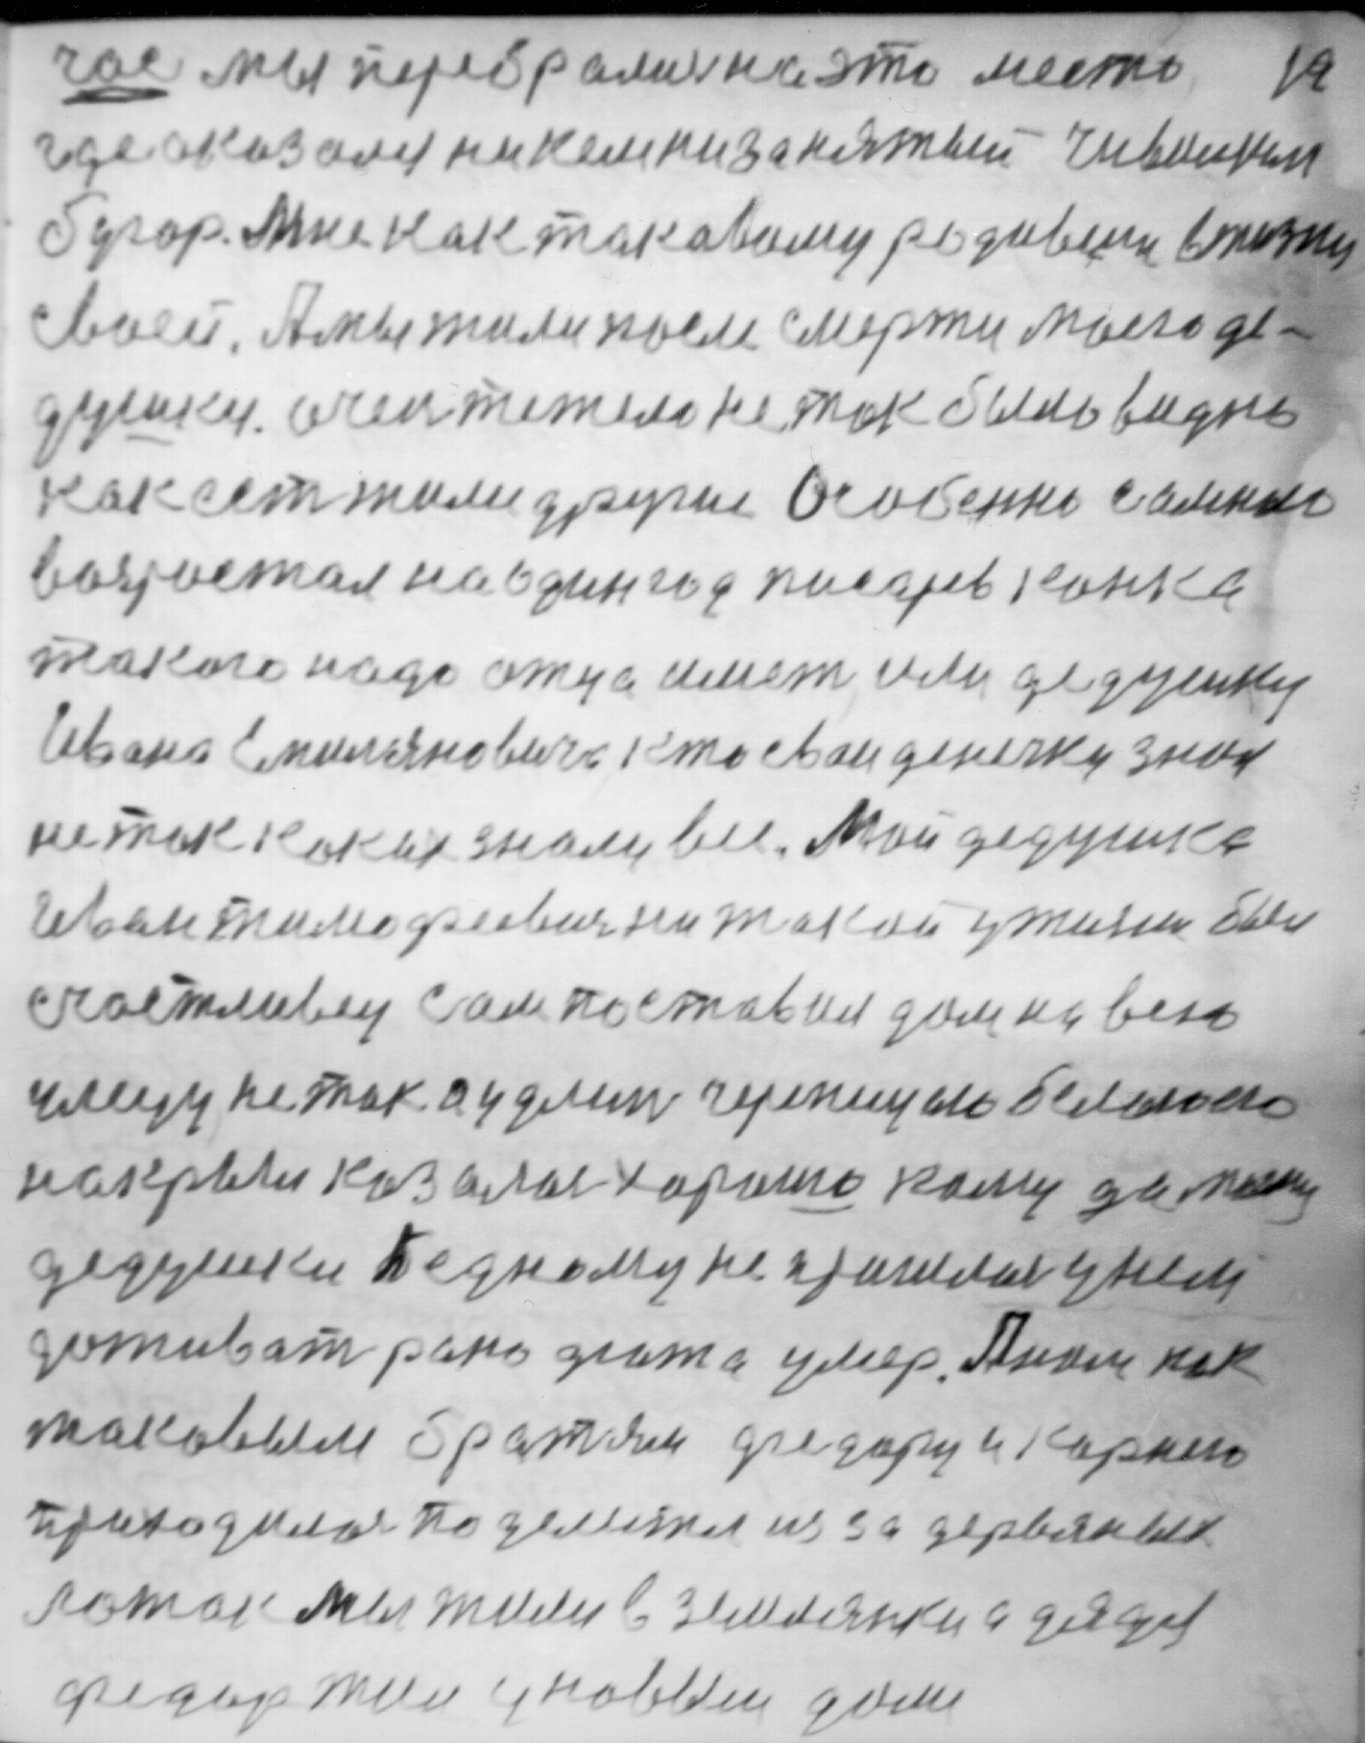 час мы перебрались на это место 19
где оказался никем ни занятый Чивилкин
бугор. Мне как таковому родивши в жизни
своей. А мы жили после смерти моего де-
душки. очен тежело не так было видно
как есть жили другие Особенно самною
возростал на один год писарев конка
такого надо отца имет или дедушку
Ивана Емиляновича кто свои денечки знал
не так как их знали все. Мой дедушка
Иван тимофеевич ни такой у жизни был
счастливец Сам поставил дом на всю
улицу не так а удлин черепицею белою его
накрыли казалос хорошо кому да моему
дедушки бедному не пришлос у нем
доживат рано дюжа умер. А нам как
таковым братям федору и Корнею
приходилос поделится из за деревяных
латак мы жили в землянки а дядя
федор жил у новым доме